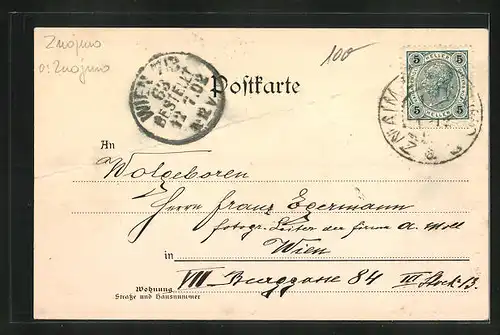 Znojmo
o: Znojmo
100
5 HELLER 5
5 HELLER 5
ZNAIM
WIEN 7/3
63
BESTELLT
11 7 02
Postkarte
An
Wolgeboren
Herrn Franz Egermann
fotogr. Leiter der firma A. Moll
in Wien
VII Burggasse 84 III Stock 13.
Wohnung
Straße und Hausnummer